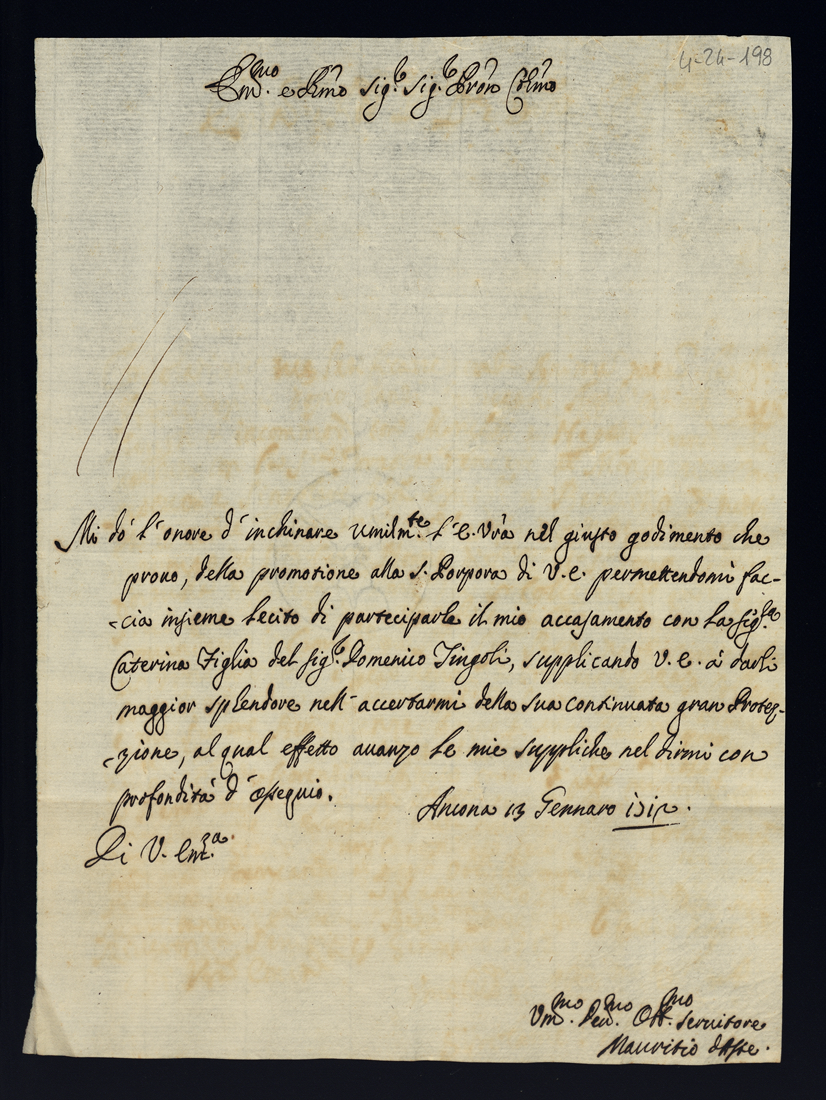 4-24-198
Em.mo e Rmo Sig.r Sig.r Pron Colmo
Mi dò l'onore d'inchinare umilm.te l'E. Vra nel giusto godimento che
prouo, della promotione alla S. Porpora di V. E. permettendomi fac-
-cia insieme lecito di participarle il mio accasamento con la Sig.ra
Caterina Figlia del Sig.r Domenico Tingoli, supplicando V. E. à darli
maggior splendore nell'accertarmi della sua continuata gran Protez-
-zione, al qual effetto auanzo le mie suppliche nel dirmi con
profondità d'ossequio.
Ancona 13 Gennaro
Di V. Em.za
Vm.mo Deu.mo Obb.mo Seruitore
Mauritio d'Aste.